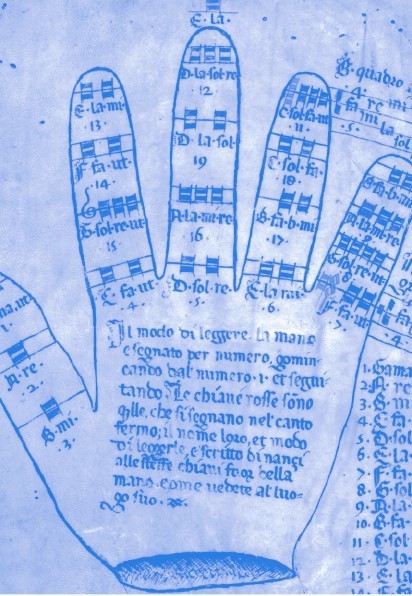 E · la ·
D·la·sol·re
12
E·la·mi·
·13·
D·la·sol·
19
C·sol·fa·ut
·11·
F·fa·ut·
·14·
C·sol·fa·
·18·
G·sol·re·ut·
15
A·la·mi·re
·16·
B·fa·b·mi·
·17·
C·fa·ut·
·4·
D·sol·re·
·5·
E·la·mi·
·6·
F·fa·ut·
·7·
B·quadro
·4·
fa re mi
mi la
·5·
sol
ma·ut·
1·
A·re·
·2·
B·mi·
·3·
Il modo di leggere la mano
e segnato per numero, comin
cando dal numero·1· et segui
tando. Le chiaue rosse sono
qlle, che si segnano nel canto
fermo; il nome loro, et modo
di leggerle, e scritto di nanzi
alle stesse chiaui fuor della
mano come uedete al luo-
go suo
1·Gama
2·A·re
3·B·mi
4·C·fa
5·D·sol
6·E·la
7·F·fa
8·G·sol
9·A·la
10·B·fa
11·C·sol
12·D·la
13·E·la